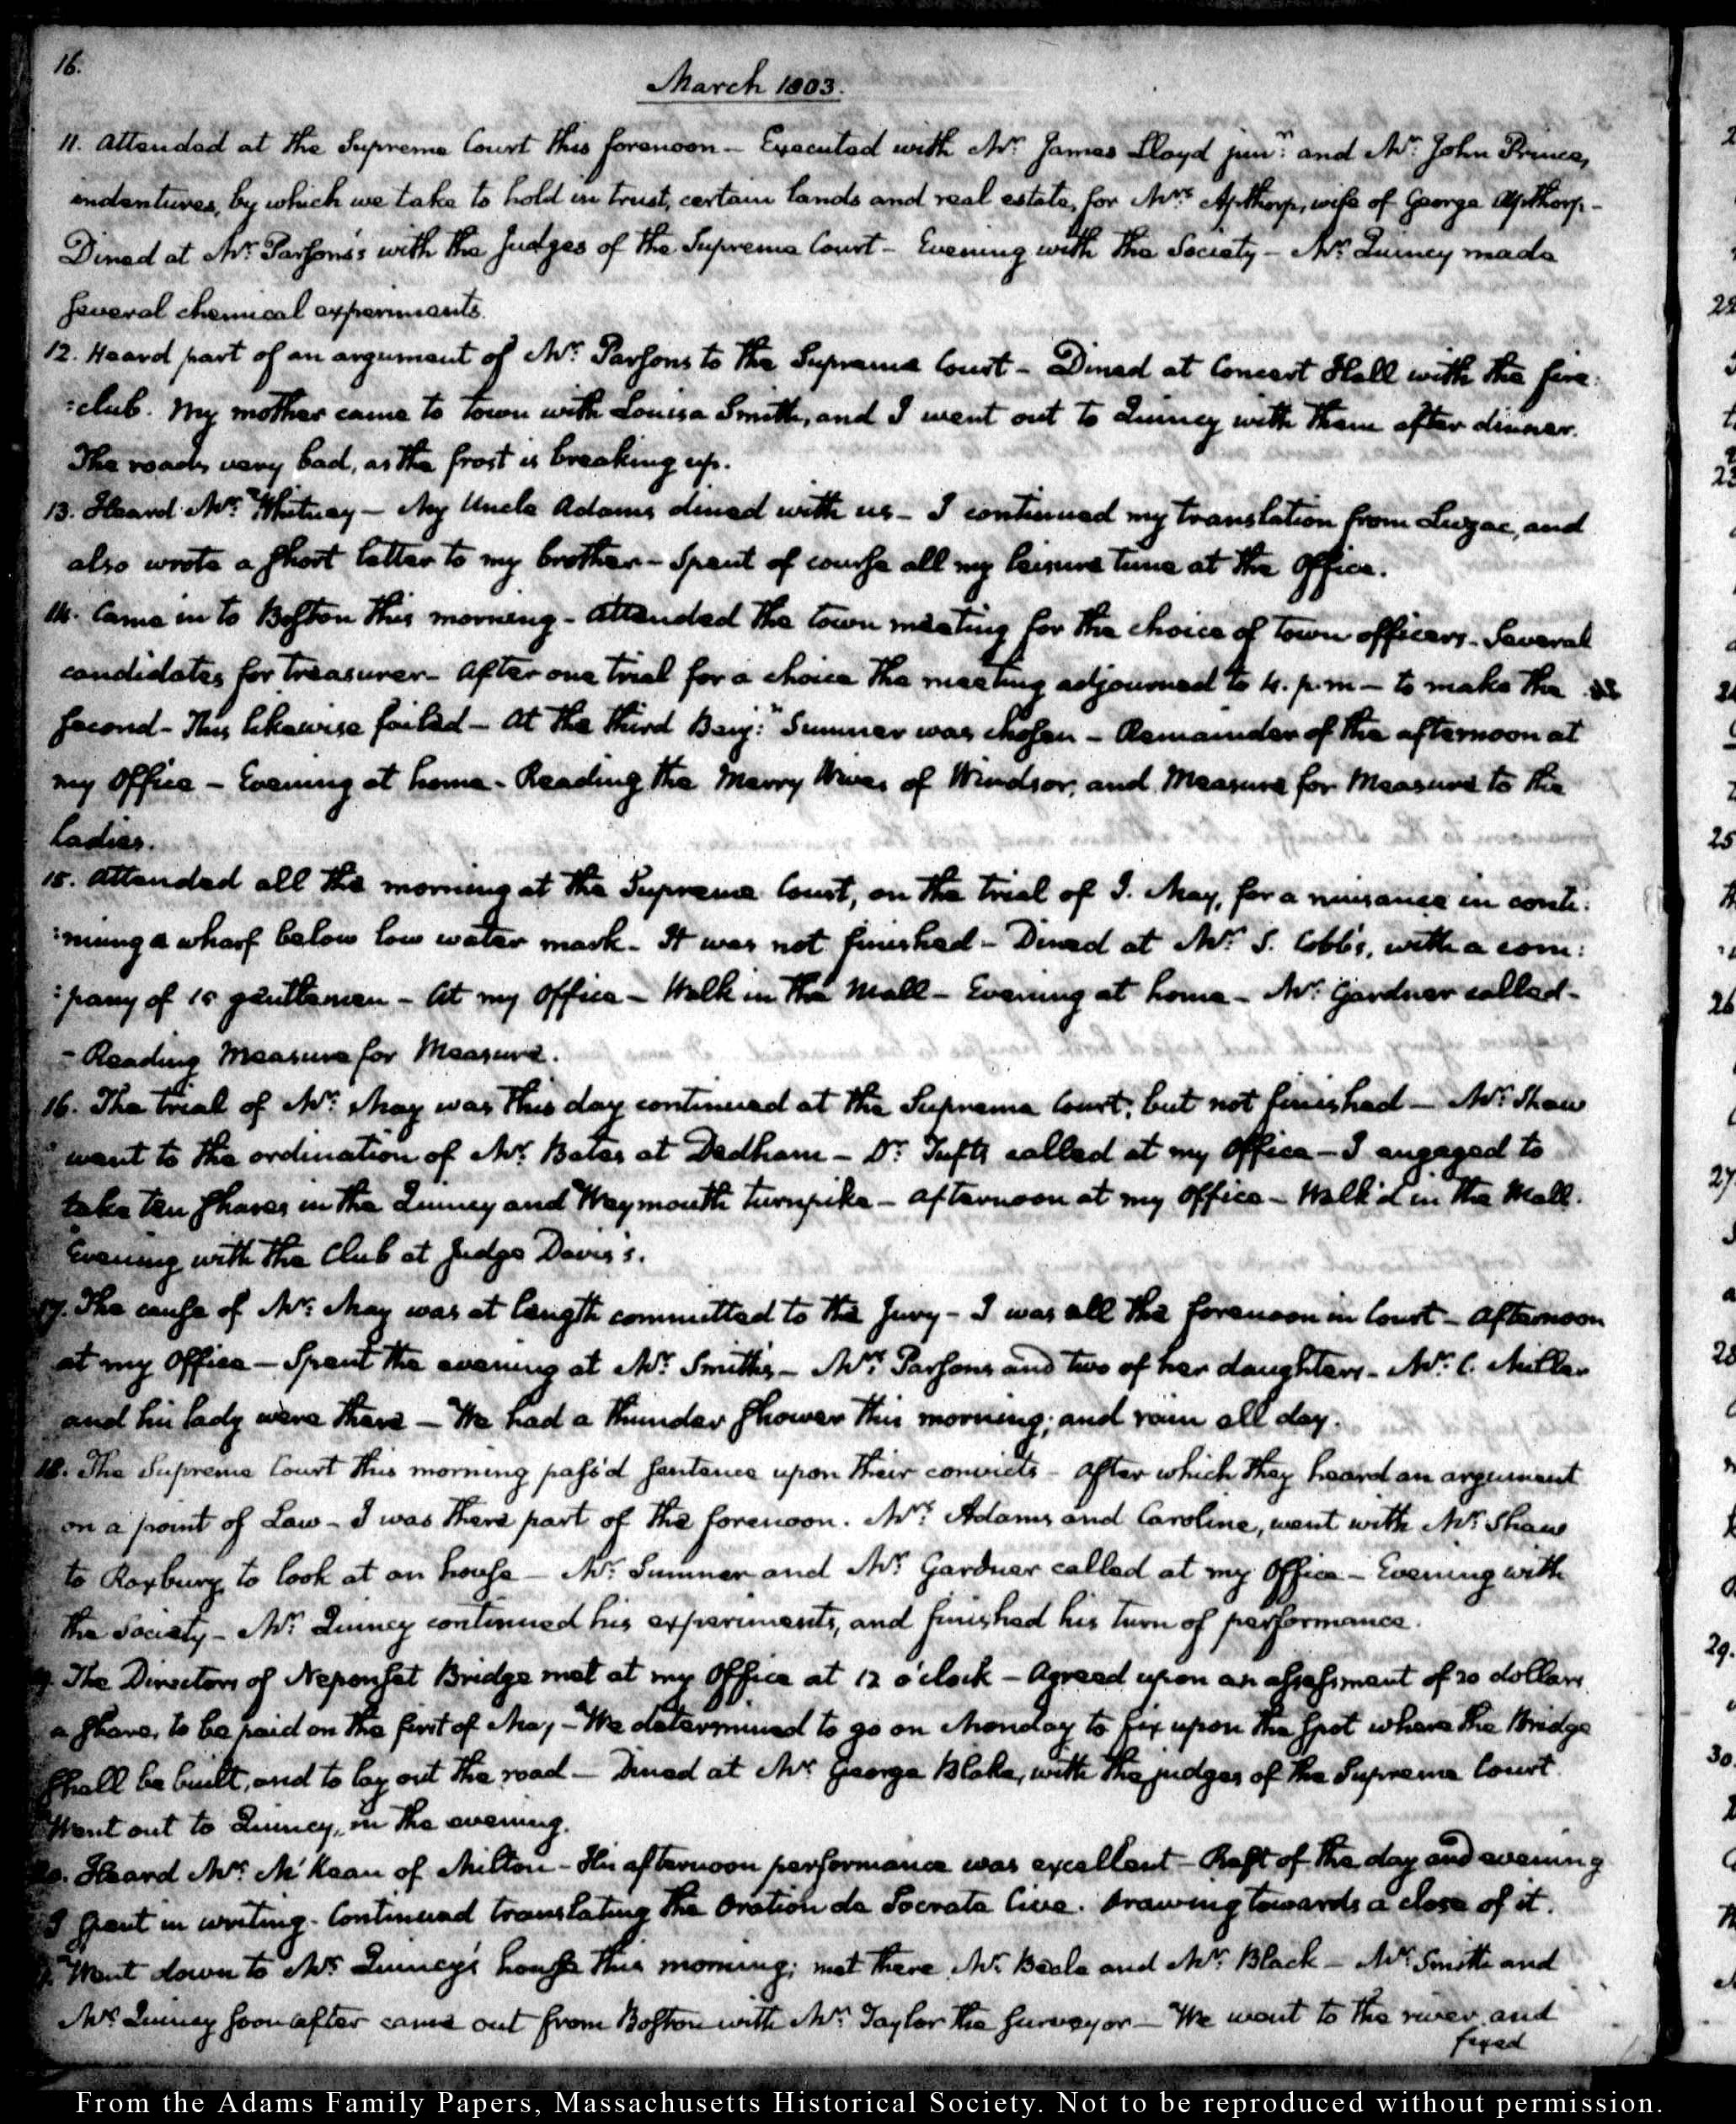 16.
March 1803.
11. Attended at the Supreme Court this forenoon — Executed with Mr. James Lloyd junr. and Mr. John Prince,
indentures, by which we take to hold in trust, certain lands and real estate, for Mrs. Apthorp, wife of George Apthorp —
Dined at Mr. Parsons's with the Judges of the Supreme Court — Evening with the Society — Mr. Quincy made
several chemical experiments.
12. Heard part of an argument of Mr. Parsons to the Supreme Court — Dined at Concert Hall with the fire:
:club. My mother came to town with Louisa Smith, and I went out to Quincy with them after dinner.
The roads very bad, as the frost is breaking up.
13. Heard Mr. Whitney — My Uncle Adams dined with us — I continued my translation from Luzac, and
also wrote a short letter to my brother — Spent of course all my leisure time at the Office.
14. Came in to Boston this morning — Attended the town meeting for the choice of town officers — Several
candidates for treasurer — After one trial for a choice the meeting adjourned to 4. p.m — to make the
second — This likewise failed — At the third Benj:n Sumner was chosen — Remainder of the afternoon at
my Office — Evening at home — Reading the Merry Wives of Windsor, and Measure for Measure to the
ladies.
15. Attended all the morning at the Supreme Court, on the trial of J. May, for a nuisance in conti:
:nuing a wharf below low water mark — It was not finished — Dined at Mr. S. Cobb's, with a com:
:pany of 15 gentlemen — At my Office — Walk in the Mall — Evening at home — Mr. Gardner called —
— Reading Measure for Measure.
16. The trial of Mr. May was this day continued at the Supreme Court, but not finished — Mr. Shaw
went to the ordination of Mr. Bates at Dedham — Dr. Tufts called at my Office — I engaged to
take ten shares in the Quincy and Weymouth turnpike — Afternoon at my Office — Walk'd in the Mall.
Evening with the Club at Judge Davis's.
17. The cause of Mr. May was at length committed to the Jury — I was all the forenoon in Court — Afternoon
at my Office — Spent the evening at Mr. Smith's — Mrs. Parsons and two of her daughters — Mr. C. Miller
and his lady were there — We had a thunder shower this morning; and rain all day.
18. The Supreme Court this morning pass'd sentence upon their convicts — After which they heard an argument
on a point of Law — I was there part of the forenoon. Mrs. Adams and Caroline, went with Mr. Shaw
to Roxbury, to look at an house — Mr. Sumner and Mr. Gardner called at my Office — Evening with
the Society — Mr. Quincy continued his experiments, and finished his turn of performance.
19. The Directors of Neponset Bridge met at my Office at 12 o'clock — Agreed upon an assessment of 20 dollars
a share, to be paid on the first of May — We determined to go on Monday to fix upon the spot where the Bridge
shall be built, and to lay out the road — Dined at Mr. George Blake, with the judges of the Supreme Court.
Went out to Quincy, in the evening.
20. Heard Mr. McKean of Milton — His afternoon performance was excellent — Rest of the day and evening
I spent in writing. Continued translating the Oration de Socrate Cive. Drawing towards a close of it.
Went down to Mr. Quincy's house this morning; met there Mr. Beale and Mr. Black — Mr. Smith and
Mr. Quincy soon after came out from Boston with Mr. Taylor the surveyor — We went to the river, and
fixed
From the Adams Family Papers, Massachusetts Historical Society. Not to be reproduced without permission.